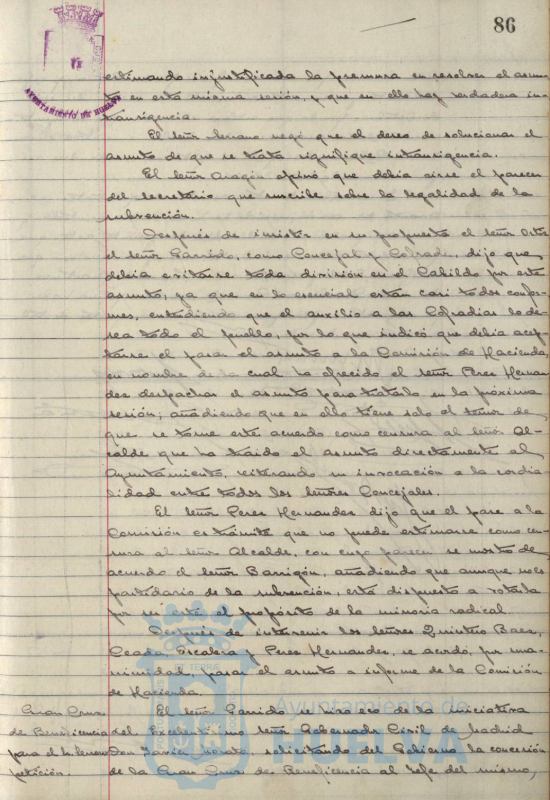 86
AYUNTAMIENTO DE HUELVA
estimando injustificada la premura en resolver el asun-
to en esta misma sesión, y que en ello hay verdadera in-
transigencia.
El señor Serrano negó que el deseo de solucionar el
asunto de que se trata signifique intransigencia.
El señor Aragón opinó que debia oirse el parecer
del secretario que suscribe sobre la legalidad de la
subvención.
Después de insistir en su propuesta el señor
el señor Garrido, como Concejal y Cofrade, dijo que
debia evitarse toda división en el Cabildo por este
asunto, ya que en lo esencial están casi todos confor-
mes, entendiendo que el auxilio a las Cofradias lo de-
sea todo el pueblo, por lo que indicó que debia acep-
tarse el pasar el asunto a la Comisión de Hacienda,
en nombre de la cual ha ofrecido el señor Peres Hernan-
dez despachar el asunto para tratarlo en la próxima
sesión; añadiendo que en ello tiene solo el temor de
que se tome este acuerdo como censura al señor Al-
calde que ha traido el asunto directamente al
Ayuntamiento, reiterando su invocación a la cordia-
lidad entre todos los señores Concejales.
El señor Peres Hernandez dijo que el pase a la
Comisión es trámite que no puede estimarse como cen-
sura al señor Alcalde, con cuyo parecer se mostró de
acuerdo el señor Barrigón, añadiendo que aunque no es
partidario de la subvención, está dispuesto a votarla
por ser este el propósito de la minoria radical.
Después de intervenir los señores Quintero Baez,
Ceada, Escalera y Peres Hernandez, se acordó, por una-
nimidad, pasar el asunto a informe de la Comisión
de Hacienda.
Gran Cruz
de Beneficencia
para el
petición.
El señor Garrido se hizo eco de la iniciativa
del Excelentisimo señor Gobernador Civil de Madrid
Don Javier Morata, solicitando del Gobierno la concesión
de la Gran Cruz de Beneficencia al Jefe del mismo,
Ayuntamiento de
HUELVA